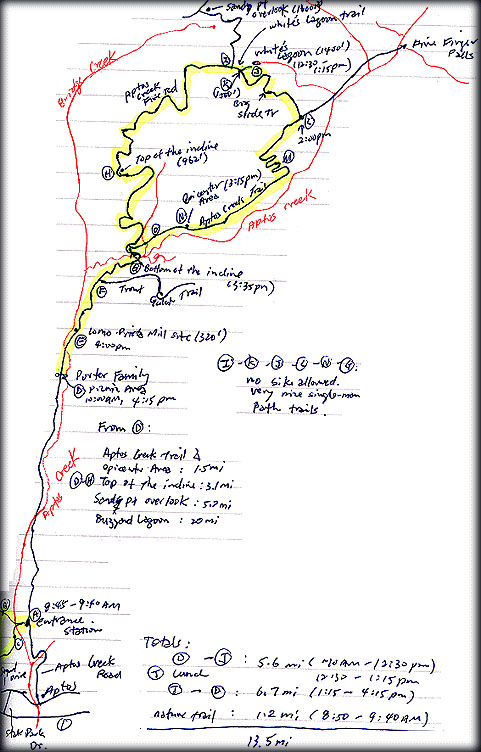 Sandy Pt
overlook (1600')
white's Lagoon trail
white's
Lagoon (1400')
(12:30 -
1:15pm)
Five Finger
Falls
Bridge Creek
Aptos
Creek
Fire Rd
I
J
K
(1500')
Big
slide Tr
L
2:00pm
M
H
Top of the incline
(962')
Epicenter (3:15pm)
Area
N
Aptos Creek Trail
Aptos Creek
O
G
Bottom of the incline
(3:35pm)
F
Trout
Gulch Trail
E
Loma Prieta Mill site (320')
4:00pm
Porter Family
D picnic Area
10:00AM, 4:15 pm
I - K - J - L - N - G
no bike allowed.
very nice single-man
path trails.
From D:
Aptos Creek trail &
epicenter Area : 1.5mi
D-H Top of the incline : 3.1mi
Sandy pt overlook : 5.7 mi
Buzzard Lagoon : 20 mi
Aptos Creek
9:45 - 9:40 AM
A
entrance
station
B
C
Aptos Creek
Road
Aptos
1
State Park
Dr.
Totals:
D - J : 5.6 mi (~10 AM - 12:30 pm)
J Lunch 12:30 - 1:15 pm
I - D : 6.7 mi (1:15 - 4:15 pm)
nature trail : 1.2 mi (8:50 - 9:40 AM)
13.5 mi